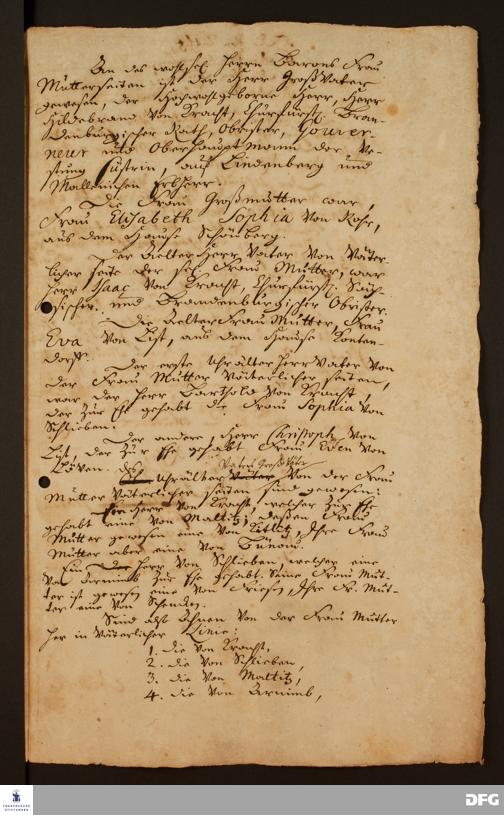 An des wohlsel. Herrn Barons Frau
Mutterseiten ist der Herr GroßVater
gewesen, der Hochwohlgeborne Herr, Herr
Hildebrand von Kracht, Churfürstl. Bran-
denburgischer Rath, Obrister, Gouver-
neur und Oberhauptmann der Ve-
stung Cüstrin, auf Lindenberg und
Erbherr.
Die Frau Großmutter war,
Frau Elisabeth Sophia von Rohr,
aus dem Hause Schönberg.
Der Aelter Herr Vater von Väter-
licher seite der sel. Frau Mutter, war
Herr Isaac von Kracht, Churfürstl. Säch-
sischer und Brandenburgischer Obrister.
Die AelterFrau Mutter, Frau
Eva von List, aus dem Hause
dorff.
Der erste UhrälterHerr Vater von
der Frau Mutter Väterlicher seiten,
war der Herr Barthold von Kracht,
der zur Ehe gehabt die Frau Sophia von
Schlieben.
Der andere, Herr Christoph von
List, der zur Ehe gehabt Frau von
Löven.
Uhrälter Väter von der Frau
Mutter Väterlicher seiten sind gewesen:
Herr von Kracht, welcher zur Ehe
gehabt eine von Maltitz, deßen Frau
Mutter gewesen eine von Ihre Frau
Mutter aber eine von Bünau.
Ein Herr von Schlieben, welcher eine
von Arnimb zur Ehe gehabt. Seine Frau Mut-
ter ist gewesen eine von Ihre Fr. Mut-
ter eine von Schencken.
Sind also Ahnen von der Frau Mutter
her in Väterlicher Linie:
1. die von Kracht,
2. die von Schlieben,
3. die von Maltitz,
4. die von Arnimb,
FRANCKESCHE
STIFTUNGEN
DFG